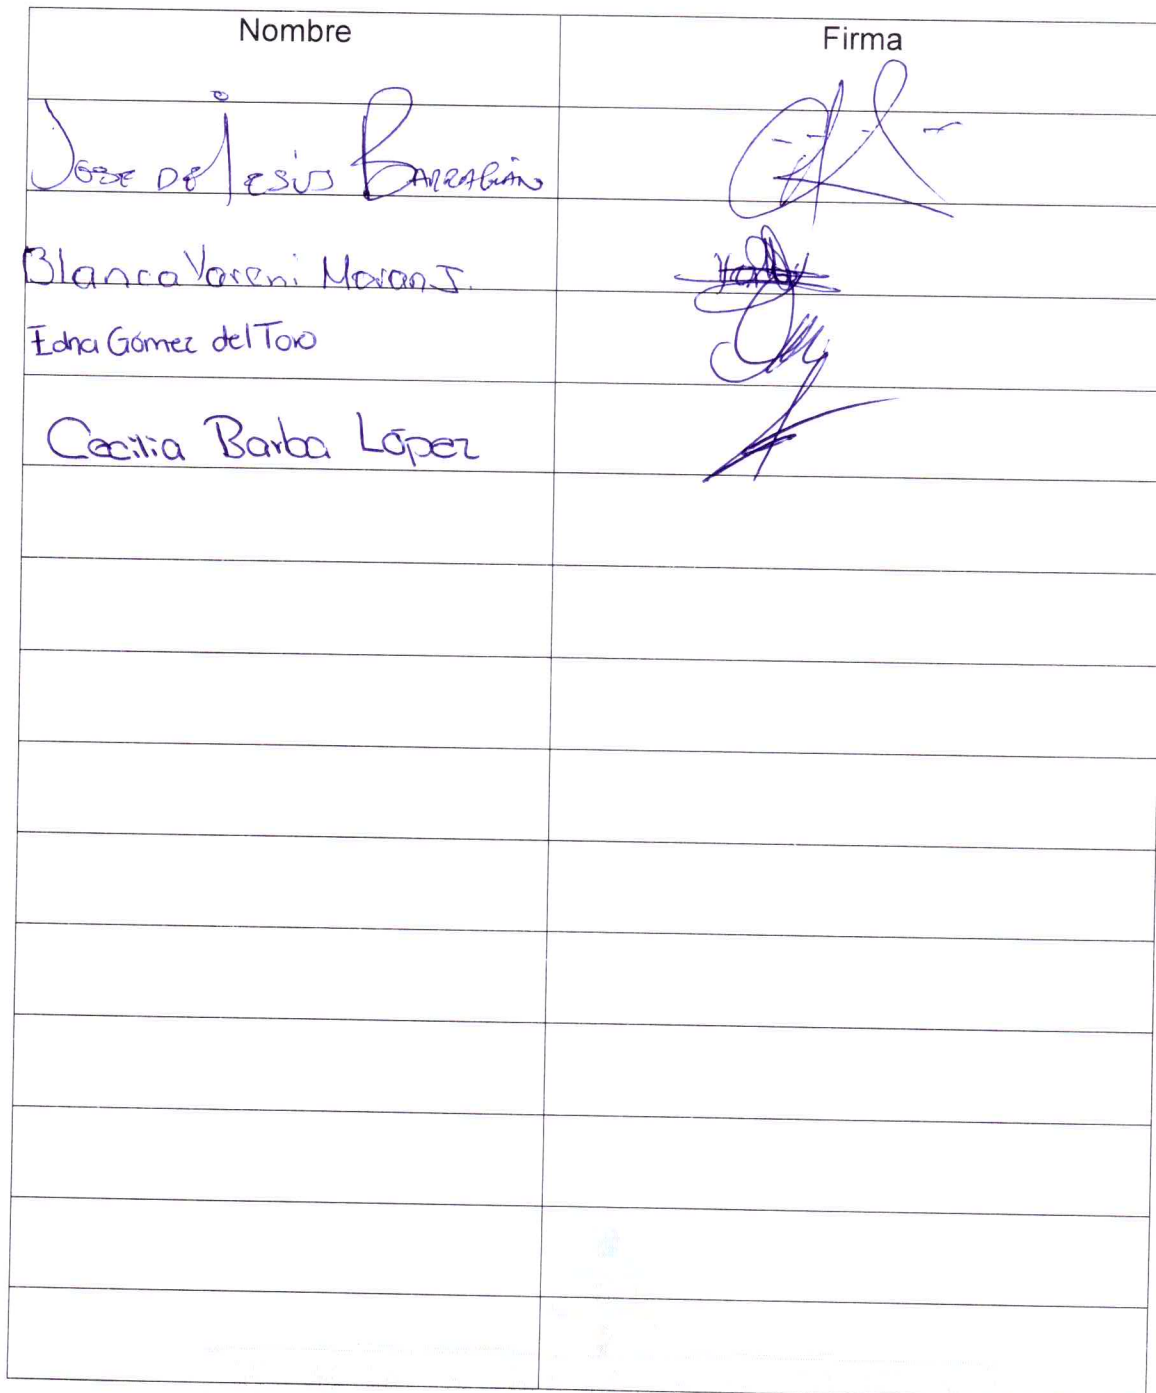 Nombre Firma
Jose de Jesús Barragán
Blanca Yareni Moran J.
Edna Gómez del Toro
Cecilia Barba López